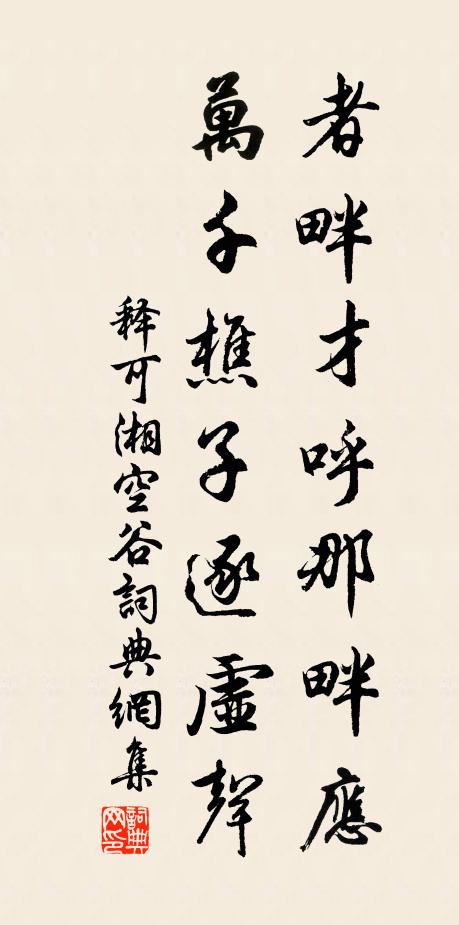 者畔才呼那畔應
萬千樵子逐虛聲
释可湘空谷詞典網集
詞典网印